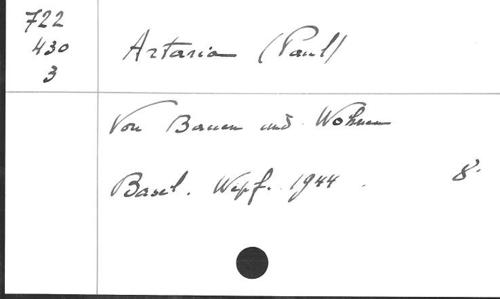 722
430
3
Artaria (Paul)
Von Bauen und Wohnen
Basel. Wepf. 1944. 8°